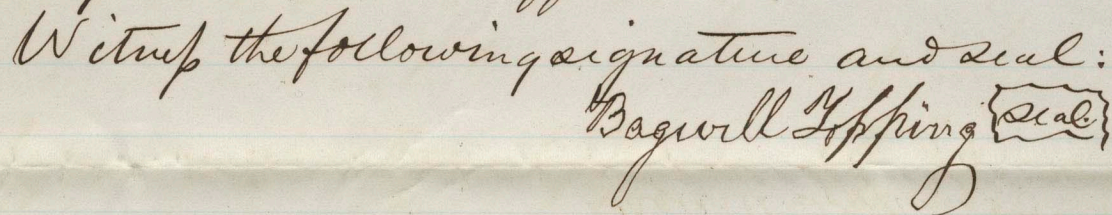 Witness the following signature and seal:
Bagwell Topping {seal.}